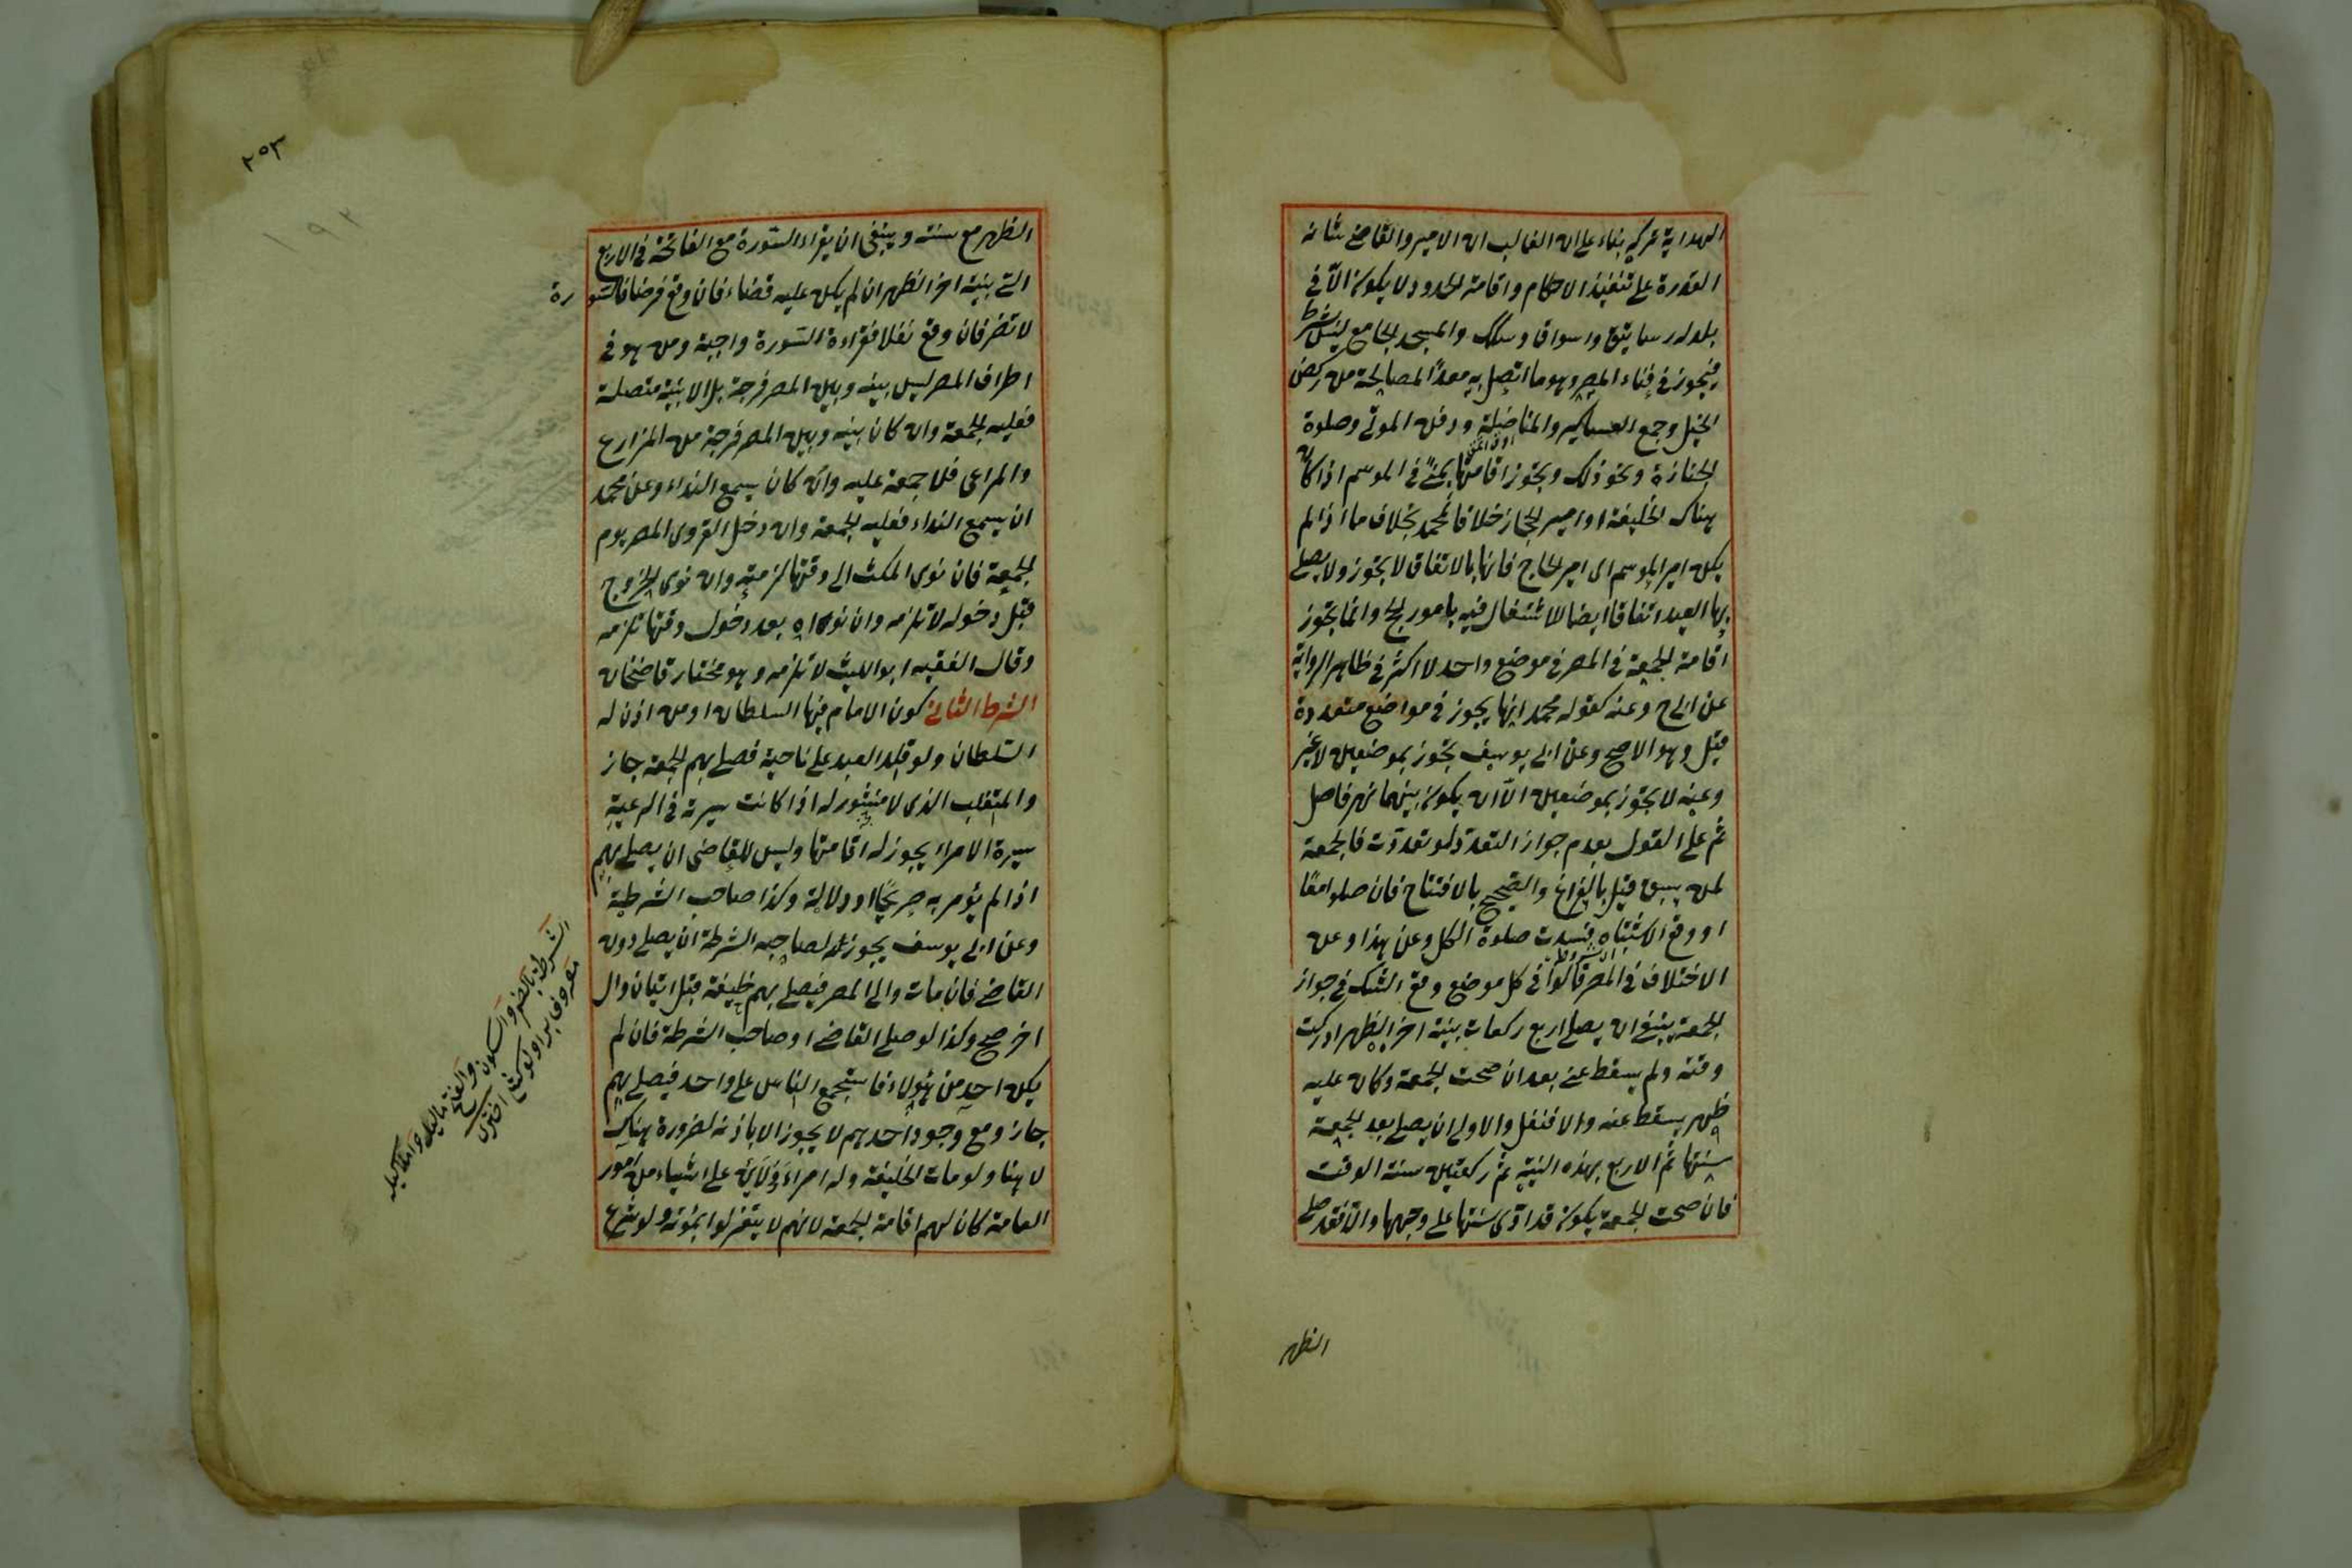 الهداية تركه بناء على ان الغالب ان الامير والقاضي شانه
القدرة على تنفيذ الاحكام واقامة الحدود ولا يكون الا في
بلد له رساتيق واسواق وسكك والمسجد الجامع ليس بشرط
فيجوز في فناء المصر وهو ما اتصل به معدا لمصالحه من ركض
الخيل وجمع العساكر والمناضلة ودفن الموتى وصلوة
الجنازة ونحو ذلك ويجوز اقامتها بمنى في الموسم اذا كان
هناك الخليفة او امير الحجاز خلافا لمحمد بخلاف ما اذا لم
يكن امير الموسم اى امير الحاج فانها بالاتفاق لا يجوز ولا يصلى
بها العيد اتفاقا ايضا للاشتغال فيه بامور الحج وانما يجوز
اقامة الجمعة في المصر في موضع واحد لا اكثر في ظاهر الرواية
عن ابى ح وعنه كقوله محمد انها يجوز في مواضع متعددة
قيل وهو الاصح وعن ابى يوسف يجوز بموضعين لا غير
وعنه لا يجوز بموضعين الا ان يكون بينهما نهر فاصل
ثم على القول بعدم جواز التعدد ولو تعددت فالجمعة
لمن سبق قيل بالفراغ والصحيح بالافتتاح فان صلوا معا
او وقع الاشتباه فسدت صلوة الكل وعن هذا وعن
الاختلاف في المصر قالوا في كل موضع وقع الشك في جواز
الجمعة ينبغى ان يصلى اربع ركعات بنية اخر الظهر ادركت
وقته ولم يسقط عنى بعد ان صحت الجمعة وكان عليه
ظهر يسقط عنه والا فنفل والاولى ان يصلى بعد الجمعة
سنتها ثم الاربع بهذه النية ثم ركعتين سنة الوقت
فان صحت الجمعة يكون قد ادى سنتها على وجهها والا فقد صلى
الظهر
٢٥٣
١٩٢
الظهر مع سنته وينبغى ان يقراء السورة مع الفاتحة في الاربع
التى بنية اخر الظهر ان لم يكن عليه قضاء فان وقع فرضا فالسورة
لا تضر فان وقع نفلا فقراءة السورة واجبة ومن هو في
اطراف المصر ليس بينه وبين المصر فرجة بل الابنية متصلة
فعليه الجمعة وان كان بينه وبين المصر فرجة من المزارع
والمراعى فلا جمعة عليه وان كان يسمع النداء وعن محمد
ان يسمع النداء فعليه الجمعة وان دخل القروى المصر يوم
الجمعة فان نوى المكث الى وقتها لزمته وان نوى الخروج
قبل دخوله لا تلزمه وان نواه بعد دخول وقتها تلزمه
وقال الفقيه ابو الليث لا تلزمه وهو مختار قاضيخان
الشرط الثانى كون الامام فيها السلطان او من اذن له
السلطان ولو قلد العبد على ناحية فصلى بهم الجمعة جاز
والمتغلب الذى لا منشور له اذا كانت سيرته في الرعية
سيرة الامراء يجوز له اقامتها وليس للقاضى ان يصلى بهم
اذا لم يؤمر به صريحا او دلالة وكذا صاحب الشرطة
وعن ابى يوسف يجوز لصاحب الشرطة ان يصلى دون
القاضى فان مات والى المصر فيصلى بهم خليفة قبل اتيان وال
اخر صح وكذا لو صلى القاضى او صاحب الشرطة فان لم
يكن احد من هؤلاء فاستجمع الناس على واحد فيصلى بهم
جاز ومع وجود احدهم لا يجوز الا باذنه لضرورة هناك
لا هنا ولو مات الخليفة وله امراء ولاية على اشياء من امور
العامة كان لهم اقامة الجمعة لانهم لا ينعزلوا بموته ولو شرع
الشرطة بالضم والسكون والفتح